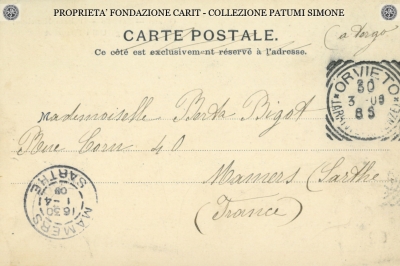 PROPRIETA' FONDAZIONE CARIT - COLLEZIONE PATUMI SIMONE
CARTE POSTALE.
a tergo
Ce côté est exclusivement réservé à l'adresse.
ORVIETO
30
3 - 09
8 S
Mademoiselle Berta Bigot
Rue 40
Mamers Sarthe
(France)
MAMERS
16 30
1 - 4
09
SARTHE